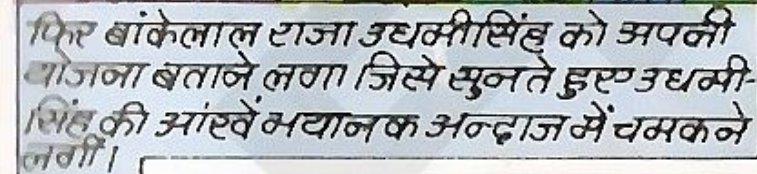 फिर बांकेलाल राजा उधमीसिंह को अपनी
योजना बताने लगा। जिसे सुनते हुए उधमी-
सिंह की आंखें भयानक अन्दाज में चमकने
लगीं।